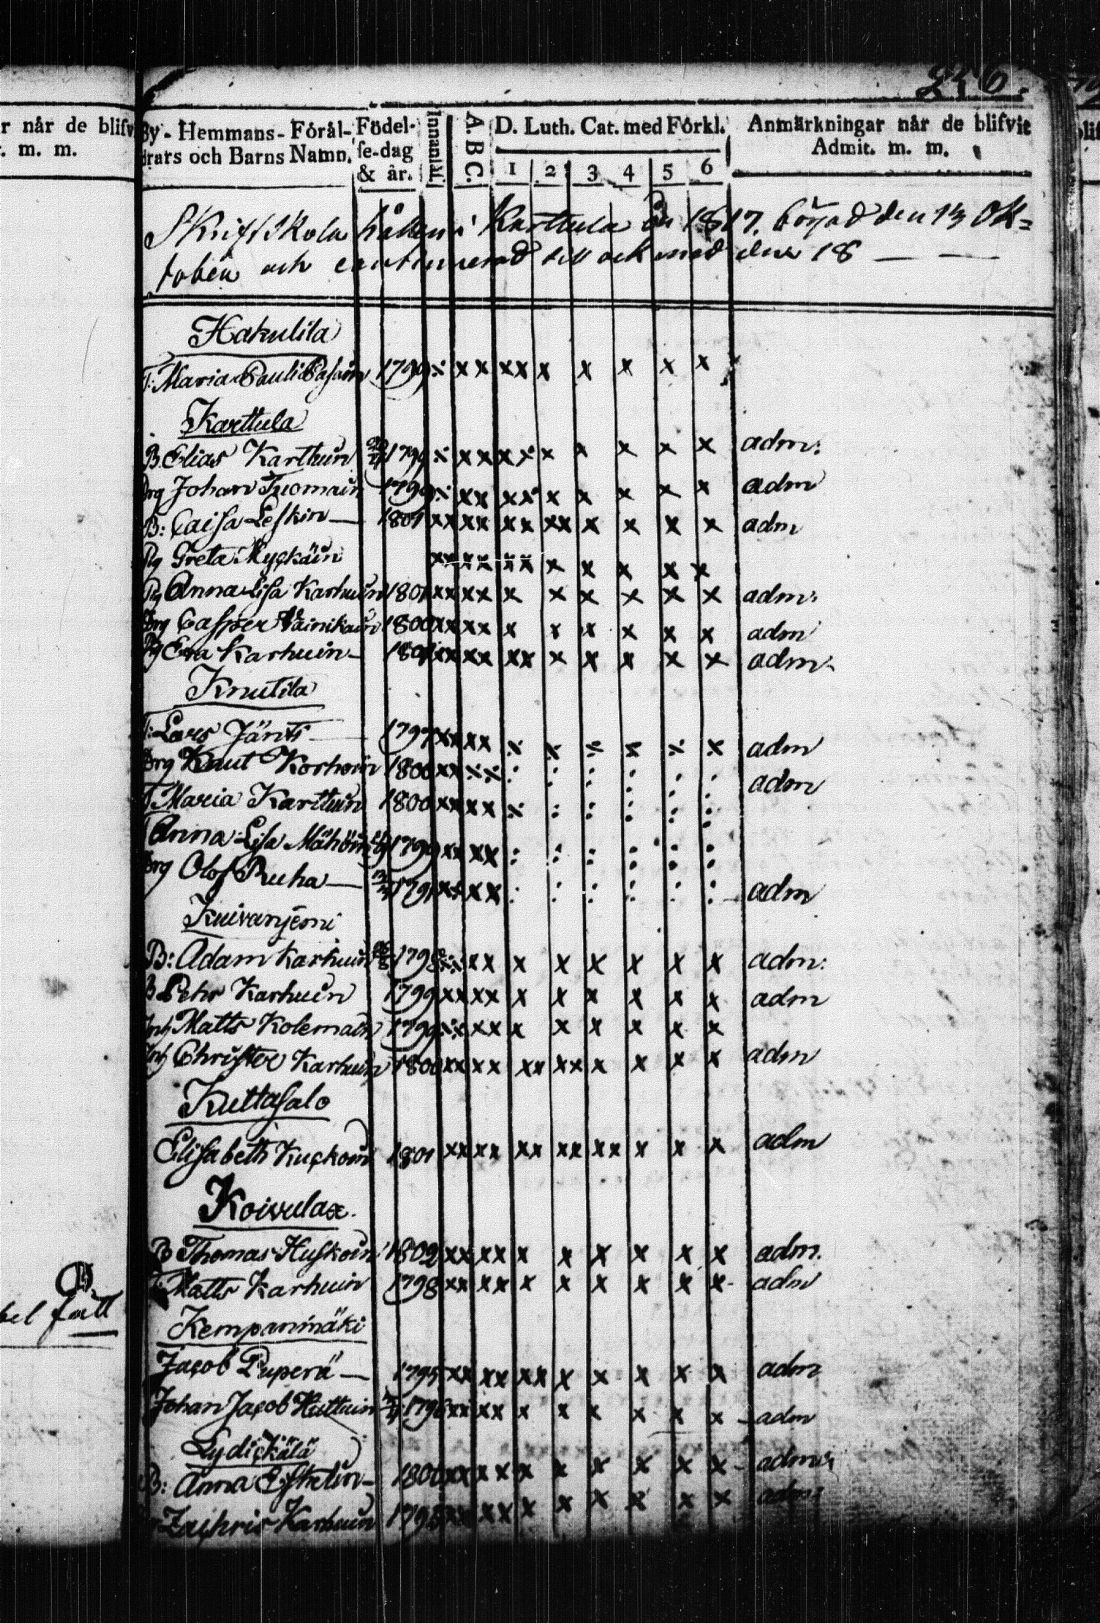 256.
r når de blifv
. m. m.
By- Hemmans- Föräl-
drars och Barns Namn.
Födel-
se-dag
& år.
Innanläs.
A. B C.
D. Luth. Cat. med Förkl.
1 2 3 4 5 6
Anmärkningar når de blifvit
Admit. m. m.
Skriftskola hållen i Karttula År 1817. börjad den 13 Ok-
tober och continuerad till och med den 18 — —
Hakulila
T: Maria Pauli 1799 ⁒ xx xx x x x x x
Karttula
B. Elias Karthuin 1799 x xx xx x x x x x adm:
Drg Johan Tuomain 1799 ⁒ xx xx x x x x x adm
B: Caisa Leskin — 1801 xx xx xx xx x x x x adm
Pig Greta Ryckäin xx xx xx x x x x
Pig Anna Lisa Karhuin 1801 xx xx x x x x x x adm:
Drg Casper Väinikain 1800 xx xx x x x x x x adm
Pig Eva Karhuin — 1801 xx xx xx x x x x x adm.
Knutila
T: Lars Jänts 1797 xx xx ⁒ ⁒ ⁒ ⁒ ⁒ x adm
Drg Knut Korhoin 1800 xx xx : : : : : : adm
T Maria Karthuin 1800 xx xx ⁒ : : : : :
T Anna Lisa Mähöin 1799 xx xx : : : : : :
Drg Olof Ruha — 1791 xx xx : : : : : : adm
Kuivanjemi
B: Adam Karhuin 1798 xx xx x x x x x x adm:
B Pehr Karhuin 1799 xx xx x x x x x x adm
Inh Matts Kolemain 1799 xx xx x x x x x x
Inh Christer Karhuin 1800 xx xx xx xx x x x x adm
Kuttasalo
Elisabeth Kuckoin 1801 xx xx xx xx xx x x x adm
Koivulax.
B Thomas Huskoin 1802 xx xx x x x x x x adm.
T: Matts Karhuin 1798 xx xx x x x x x x adm
bel fått
Kempanmäki
Jacob Puperä — 1795 xx xx xx x x x x x adm
Johan Jacob Huttuin 1796 xx xx x x x x x x adm
Lydickälä
B: Anna Eskelin — 1800 xx xx x x x x x x adm:
Zachris Karhuin 1795 xx xx x x x x x x adm: